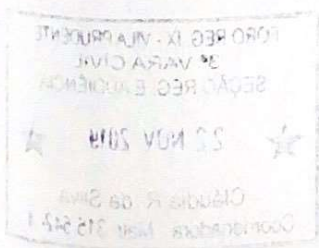 FORO REG. IX - VILA PRUDENTE
3ª VARA CIVIL
SEÇÃO REG. E AUDIÊNCIA
22 NOV 2019
Cláudia R. da Silva
Coordenadora Matr. 315.542